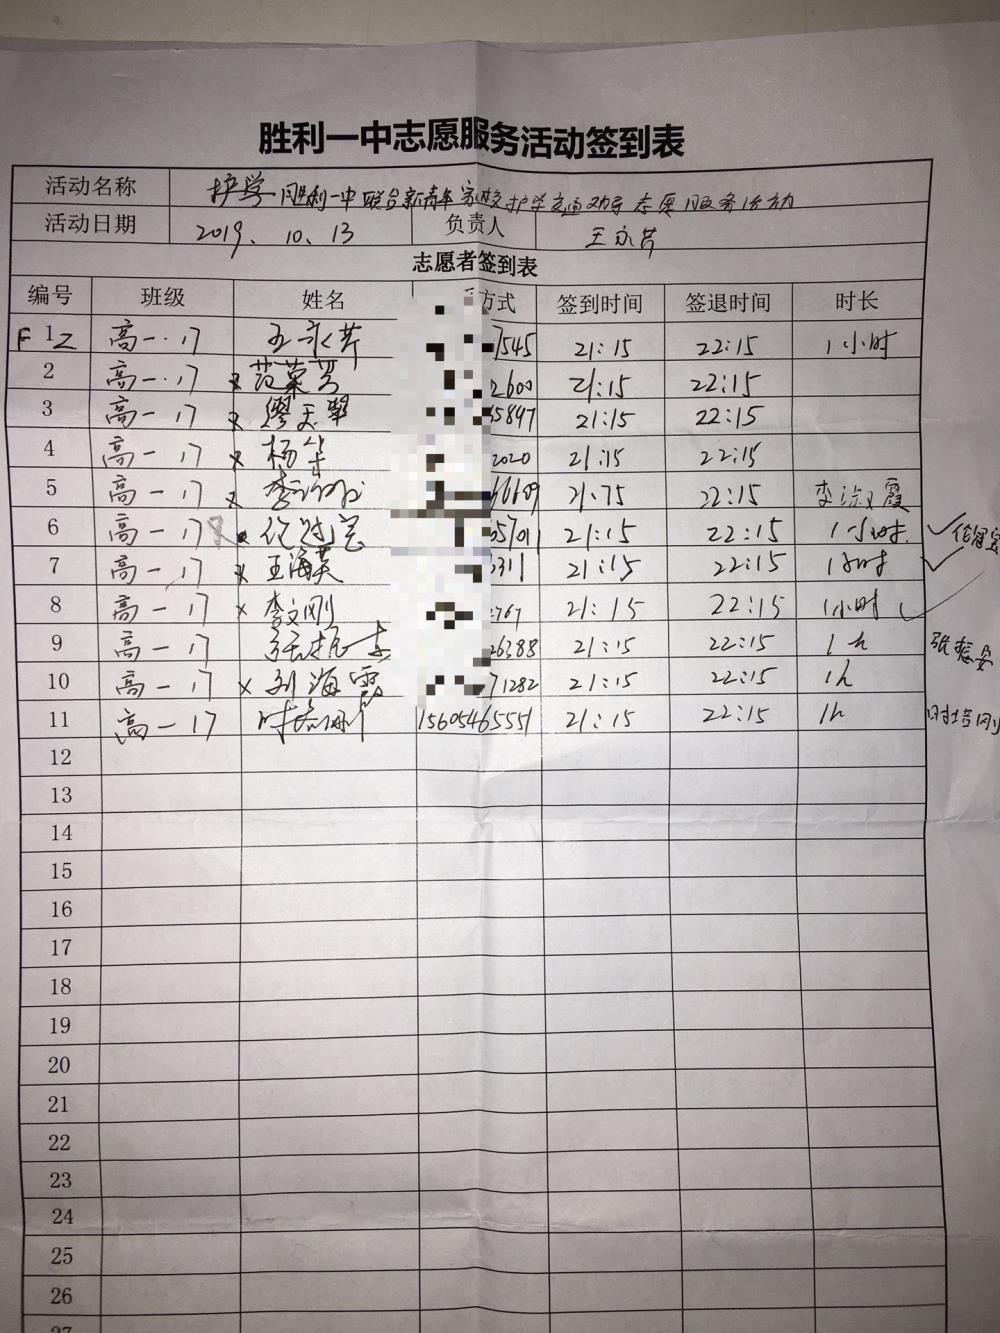 胜利一中志愿服务活动签到表
活动名称 护学 胜利一中联合新青年家政护学交通劝导志愿服务活动
活动日期 2019、10、13 负责人 王永芹
志愿者签到表
编号 班级 姓名 方式 签到时间 签退时间 时长
1 高一.17 王永芹 7545 21:15 22:15 1小时
2 高一.17 2600 21:15 22:15
3 高一17 缪天翠 45897 21:15 22:15
4 高一17 杨华 2020 21:15 22:15
5 高一17 66609 22:15 李淑霞
6 高一17 05701 21:15 22:15 1小时
7 高一17 王海英 0311 21:15 22:15 1小时
8 高一17 李文刚 2767 21:15 22:15 1小时
9 高一17 张振安 26388 21:15 22:15 1h 张振安
10 高一17 刘海霞 71282 21:15 22:15 1h
11 高一17 时培刚 15605465551 21:15 22:15 1h 时培刚
12
13
14
15
16
17
18
19
20
21
22
23
24
25
26
27